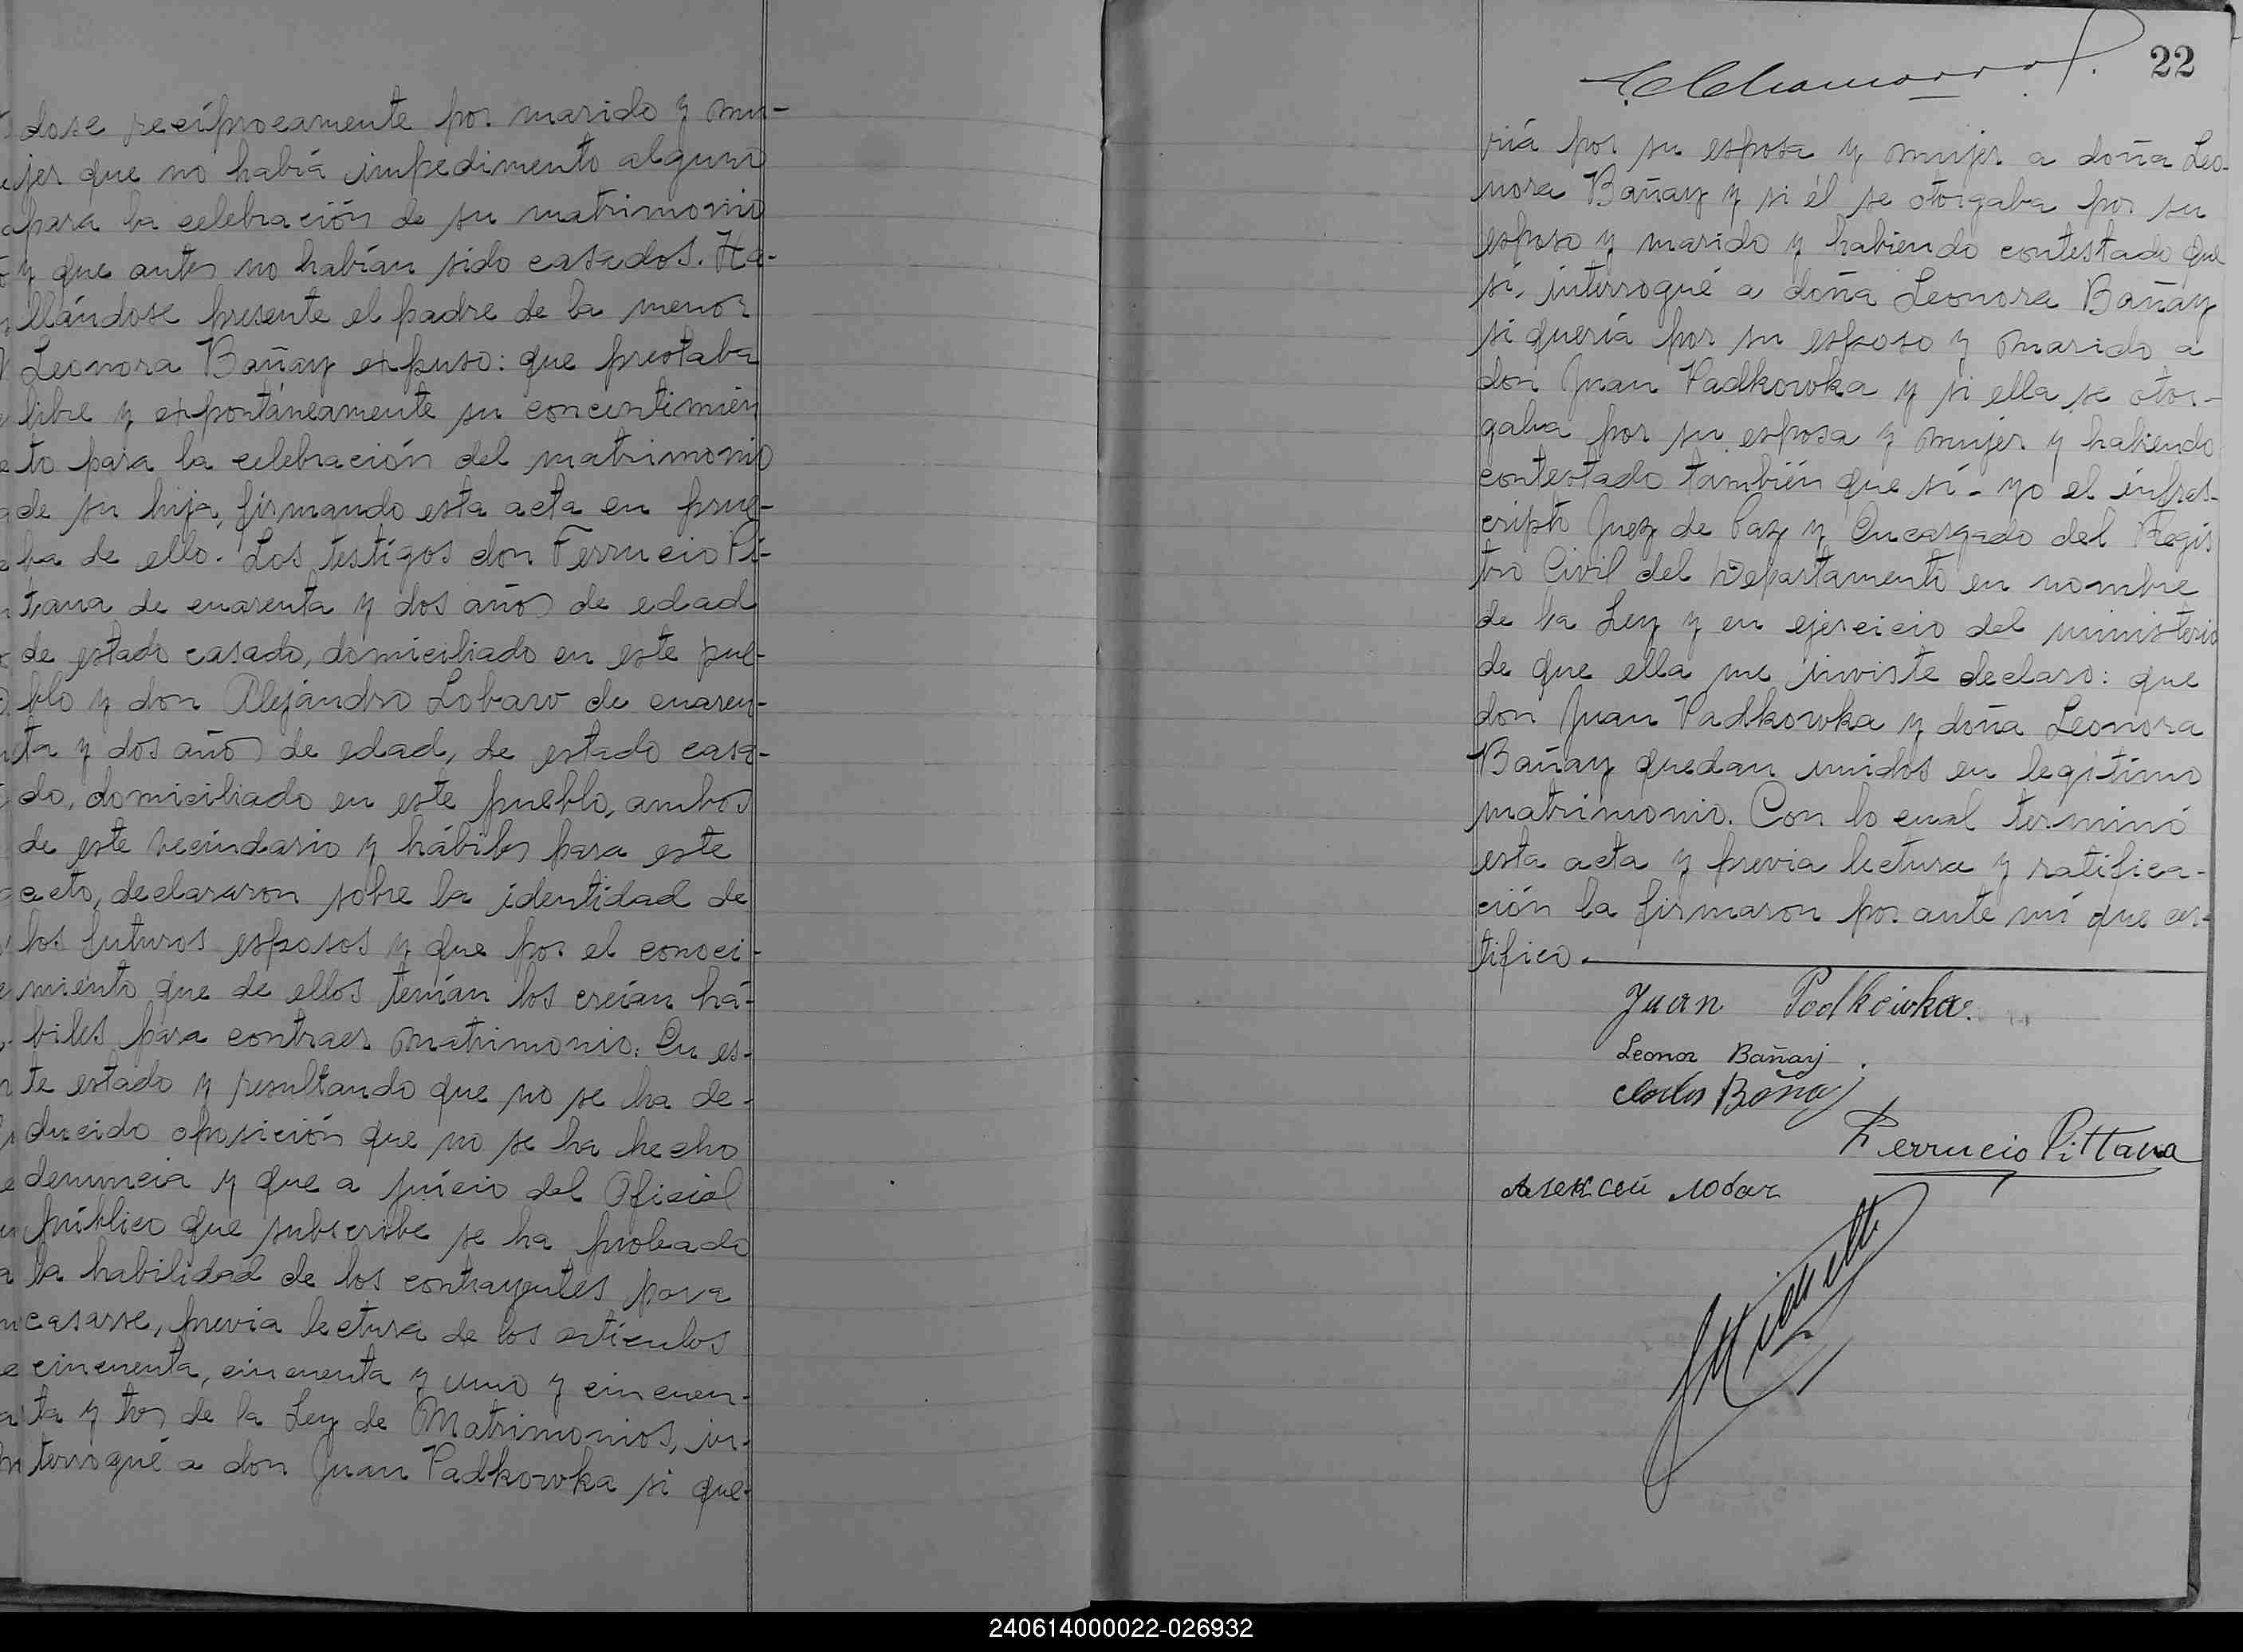 dose recíprocamente por marido y mu-
jer que no había impedimento alguno
para la celebración de su matrimonio
y que antes no habían sido casados. Ha-
llándose presente el padre de la menor
Leonora Bañay expuso: que prestaba
libre y expontáneamente su concentimien
to para la celebración del matrimonio
de su hija, firmando esta acta en prue-
ba de ello. Los testigos don Ferrucio Pi-
tana de cuarenta y dos años de edad
de estado casado, domiciliado en este pue-
blo y don Alejandro Lobaw de cuaren-
ta y dos años de edad, de estado casa-
do, domiciliado en este pueblo, ambos
de este vecindario y hábiles para este
acto, declararon sobre la identidad de
los futuros esposos y que por el conoci-
miento que de ellos tenían los creían há-
biles para contraer matrimonio. En es-
te estado y resultando que no se ha de-
ducido oposición que no se ha hecho
denuncia y que a juicio del Oficial
público que subscribe se ha probado
la habilidad de los contrayentes para
casarse, previa lectura de los artículos
cincuenta, cincuenta y uno y cincuen-
ta y tres de la Ley de Matrimonios, in-
terrogué a don Juan Padkowka si que-
22
ría por su esposa y mujer a doña Leo-
nora Bañay y si él se otorgaba por su
esposo y marido y habiendo contestado que
sí, interrogué a doña Leonora Bañay
si quería por su esposo y marido a
don Juan Padkowka y si ella se otor-
gaba por su esposa y mujer y habiendo
contestado también que sí - yo el infras-
cripto Juez de Paz y Encargado del Regis
tro Civil del Departamento en nombre
de la Ley y en ejercicio del ministerio
de que ella me inviste declaro: que
don Juan Padkowka y doña Leonora
Bañay quedan unidos en legítimo
matrimonio. Con lo cual terminó
esta acta y previa lectura y ratifica-
ción la firmaron por ante mí que cer-
tifico.
Juan Podkowka.
Leonor Bañay.
Carlos Bañay
Ferrucio Pittana
Алексей Лобач
240614000022-026932